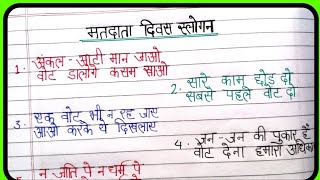 मतदाता दिवस स्लोगन
1. अंकल - आंटी मान जाओ
वोट डालोगे कसम खाओ
2. सारे काम छोड़ दो
सबसे पहले वोट दो
3. एक वोट भी न रह जाए
आओ करके ये दिखलाए
4. जन - जन की पुकार है
वोट देना हमारा
न जाति पे न धर्म पे